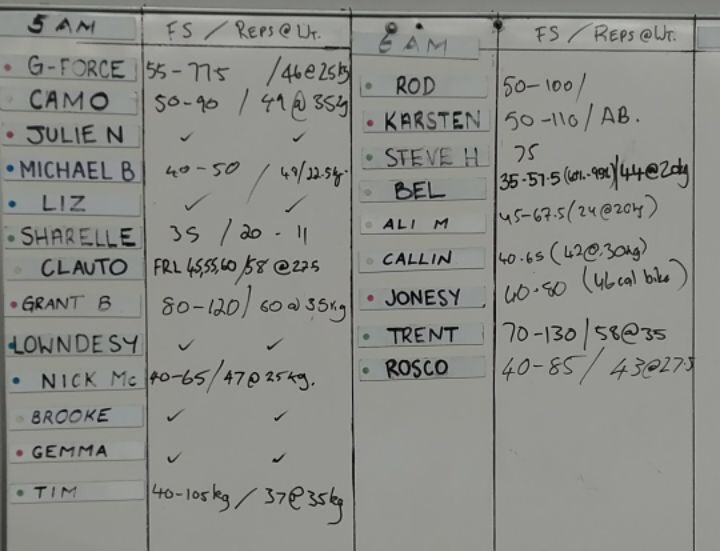 5 AM FS / REPS @ WT.
G-FORCE 55-77.5 / 46@25kg
CAMO 50-90 / 49@35kg
JULIE N ✓ ✓
MICHAEL B 40-50 / 49/22.5kg.
LIZ ✓ ✓
SHARELLE 35 / 20 - 11
CLAUTO FRL 45,55,60/58 @22.5
GRANT B 80-120 / 60@35kg
LOWNDESY ✓ ✓
NICK Mc 40-65 / 47@25kg.
BROOKE ✓ ✓
GEMMA ✓ ✓
TIM 40-105kg / 37@35kg
6 AM FS / REPS@WT.
ROD 50-100/
KARSTEN 50-110 / AB.
STEVE H 75
BEL 35-57.5 /44@20kg
ALI M 45-67.5 (24@20kg)
CALLIN 40-65 (42@30kg)
JONESY 40-80 (46cal bike)
TRENT 70-130/58@35
ROSCO 40-85 / 43@27.5